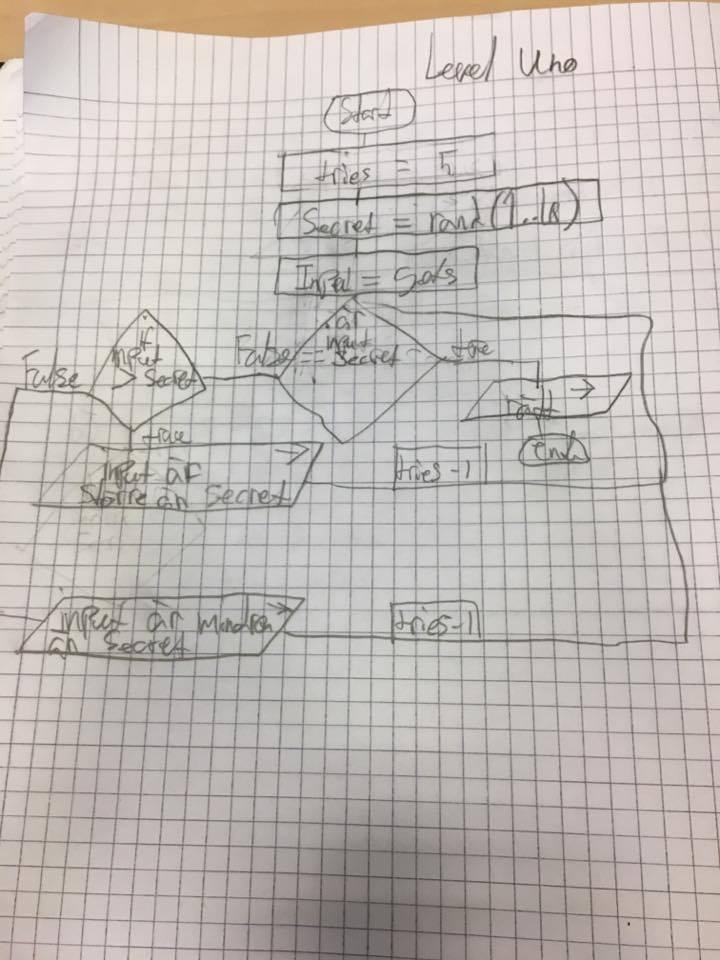 Level Uno
Start
tries = 5
Secret = rand(1..10)
Input = Gets
är
input
== Secret
False
true
if
input
> Secret
False
true
→
end
input är
större än Secret
→
tries-1
input är mindre
än Secret
→
tries-1